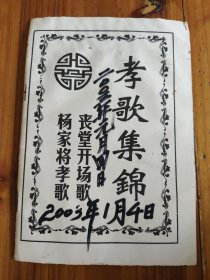 孝歌集錦
二00三年元月四日
丧堂开场歌
杨家将孝歌
2003年1月4日